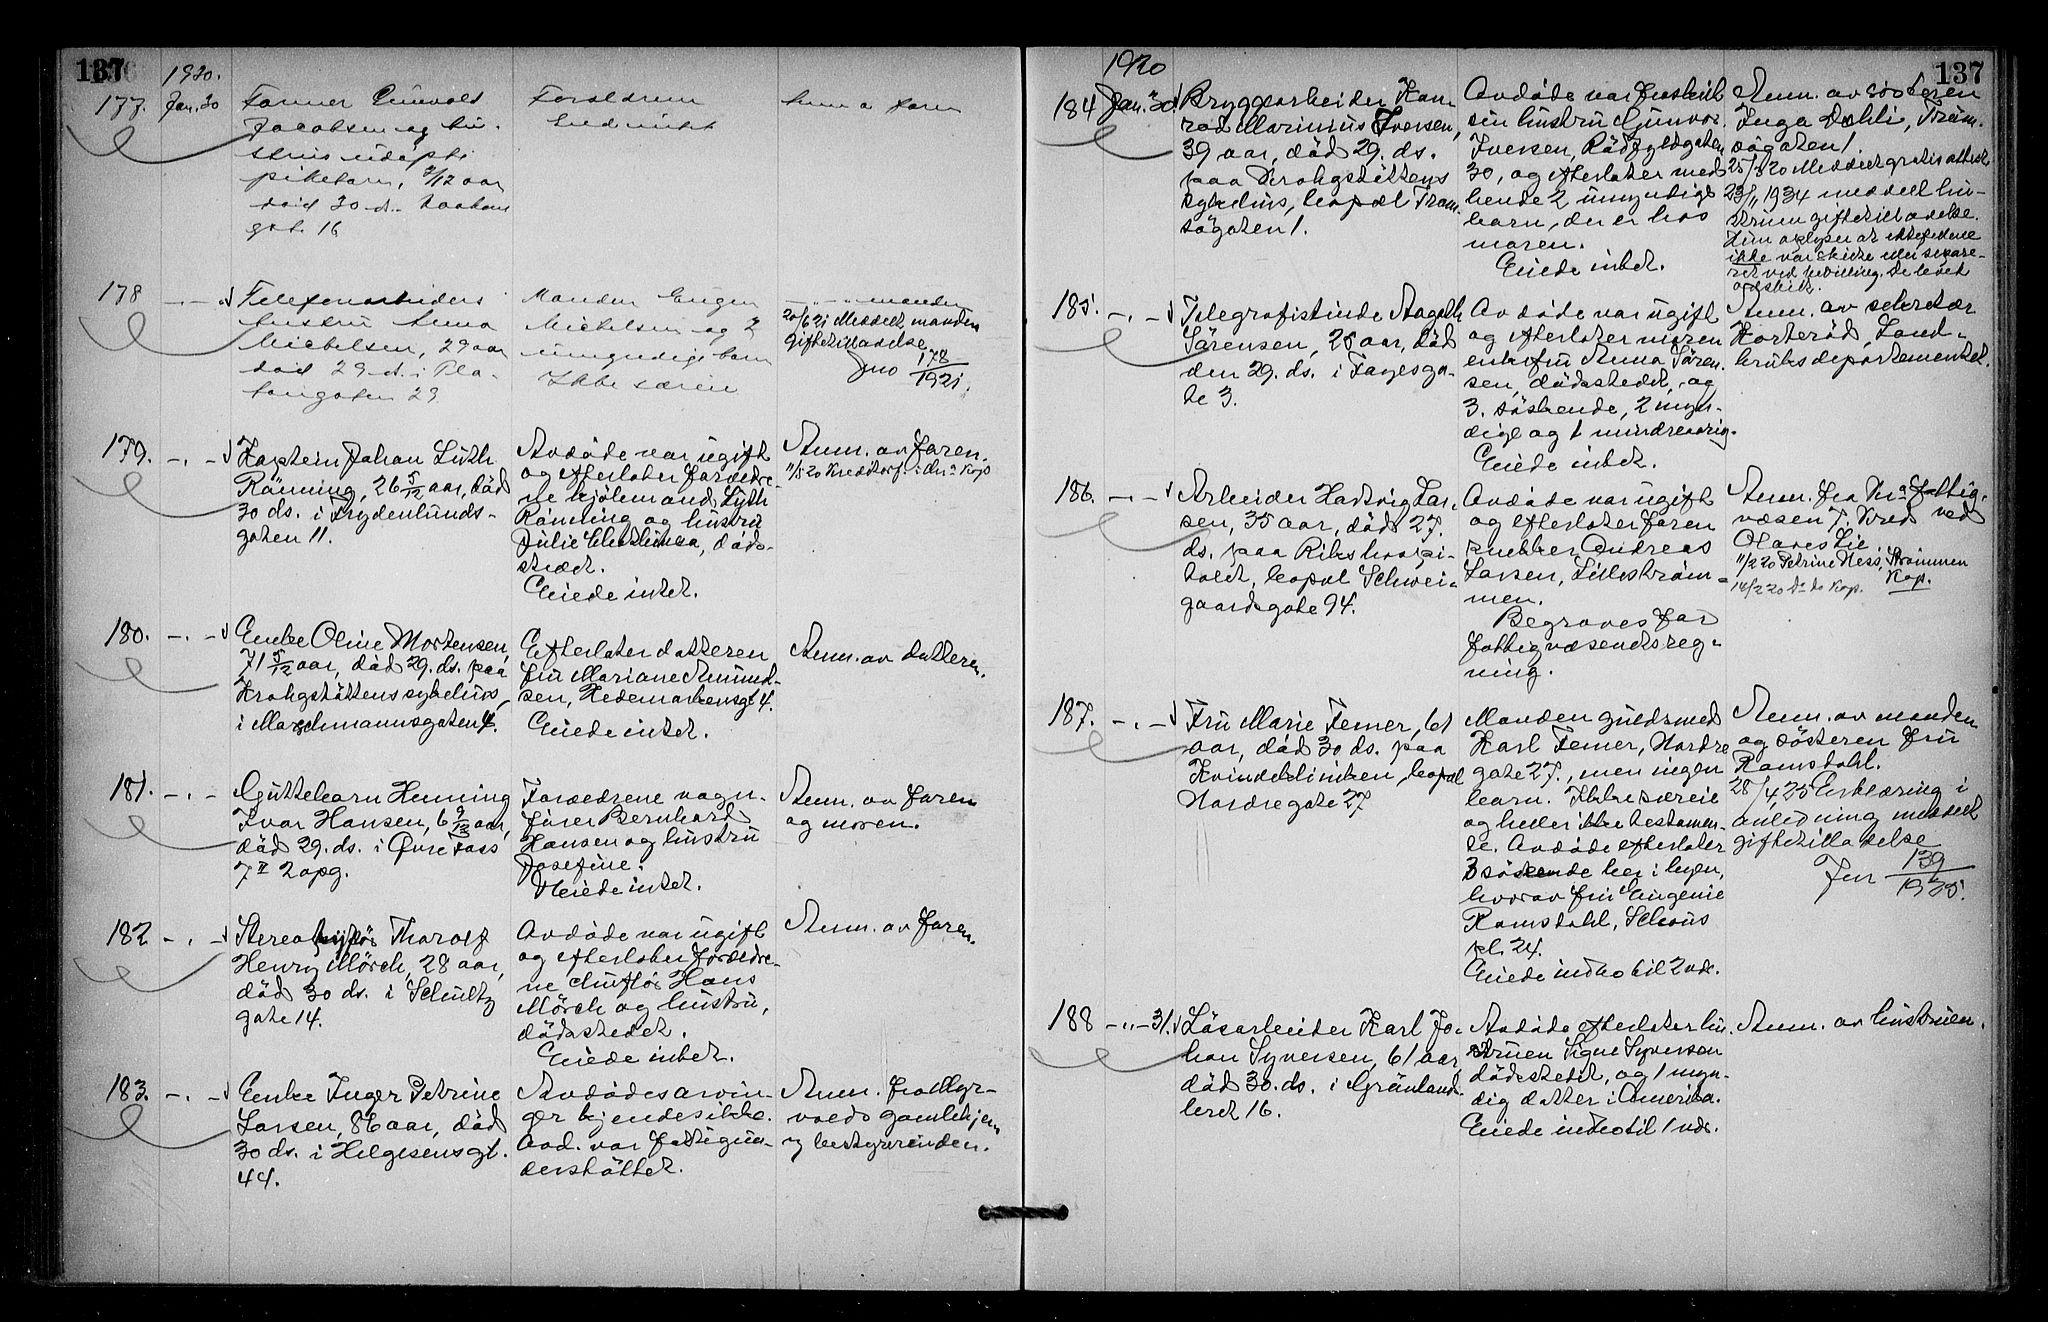 137
1920.
177. Jan. 30
Former Einvald
Jacobsen og hu-
strus udøpte
pikebarn, 2/12 aar
død 30 ds.
gat. 16
Forældrene
Eied intet
178 - -
Telefonarbeiders
hustru Anna
Michelsen, 29 aar
død 29 d. i Pla-
tangaten 23
Manden Eugen
Michelsen og 2
umyndige barn
Ikke særeie
- " - manden
20/6 21 Meddelt manden
giftetilladelse.
Jno 178/1921.
179. - . -
Kaptein Johan Lüth
Rönning, 26 5/12 aar, död
30 ds. i Frydenlunds-
gaten 11.
Avdöde var ugift
og efterlater forældre-
ne kjölemand Lyth
Rönning og hustru
Julie
död-
stedet.
Eiede intet.
Anm. av faren.
11/5 20 Kreditorf. i Chr.a Kop
180. - . -
Enke Oline Mortensen,
71 5/12 aar, död 29. ds. paa
Krohgstöttens sykehus,
i Marschmannsgaten 4.
Efterlater datteren
fru Mariane Amund-
sen, Hedemarkensgt 4.
Eiede intet.
Anm. av datteren.
181. - . -
Guttebarn Henning
Ivar Hansen, 6 9/12 aar,
död 29. ds. i Övre Foss
7 II 2 opg.
Forældrene vogn-
förer Bernhard
Hansen og hustru
Josefine.
Eiede intet.
Anm. av faren
og moren.
182 - . -
Stereotypör Thorolf
Henry Mörch, 28 aar,
död 30 ds. i Schultz
gate 14.
Avdöde var ugift
og efterlater foreldre-
ne chuflör Hans
Mörch og hustru,
dödsstedet.
Eiede intet.
Anm. av faren.
183. - . -
Enke Inger Petrine
Larsen, 86 aar, död
30 ds. i Helgesensgt.
44.
Avdödes arvin-
ger kjendes ikke.
Avd. var fattigun-
derstöttet.
Anm. fra Myr-
volds gamlehjem
v/ bestyrerinden.
137
1920
184 Jan. 30
Bryggearbeider Kon-
rad Marinius Iversen,
39 aar, död 29. ds.
paa Krohgstöttens
sykehus, bopæl Trom-
sögaten 1.
Avdöde var fraskilt
sin hustru Gunvor
Iversen, Rödfyldgaten
30, og efterlater med
hende 2 umyndige
barn, der er hos
moren.
Eiede intet.
Anm. av søsteren
Inga Dahli, Trom-
søgaten 1.
25/3 20 Meddelt gratis attest
23/11 1934 meddelt hu-
struen giftetilladelse.
Hun oplyser at ektefellene
ikke var skilte eller separe-
ret ved bevilling. De levet
adskilt.
185. - . -
Telegrafistinde Aagoth
Sörensen, 25 aar, död
den 29. ds. i Fayesga-
te 3.
Avdöde var ugift
og efterlater moren
enkefru Anna Sören-
sen, dödsstedet, og
3. söskende, 2 myn-
dige og 1 mindreaarig.
Eiede intet.
Anm. av sekretær
Korteröd, Land-
bruksdepartementet.
186. - . -
Arbeider Hartvig Lar-
sen, 35 aar, död 27.
ds. paa Rikshospi-
talet, bopæl Schwei-
gaardsgate 94.
Avdöde var ugift
og efterlater faren
pukker Andreas
Larsen, Lilleström-
men.
Begraves for
fattigvæsenets reg-
ning.
Anm. fra Kr.a fattig-
væsen 7. Kreds ved
Olaves Lie.
11/2 20 Petrine Næss, Strömmen
Kop.
14/2 20 do do Kop.
187. - . -
Fru Marie Femer, 61
aar, död 30 ds. paa
Kvindeklinikken, bopæl
Nordregate 27
Manden guldsmed
Karl Femer, Nordre
gate 27., men ingen
barn. Ikke særeie
og heller ikke testamen-
te. Avdöde efterlater
3 söskende her i byen,
hvorav fru Eugenie
Ramsdahl, Schous
pl. 24.
Eiede indbo til 2 vdr.
Anm. av manden
og sösteren fru
Ramsdahl.
28/4 25 Erklæring i
anledning meddelt
giftetilladelse
Jnr 139/1925.
188 - " - 31.
Lösarbeider Karl Jo-
han Syversen, 61 aar,
död 30. ds. i Grönland-
leret 16.
Avdöde efterlater hu-
struen Signe Syversen
dödsstedet, og 1 myn-
dig datter i Amerika.
Eiede indbo til 1 vdr.
Anm. av hustruen.